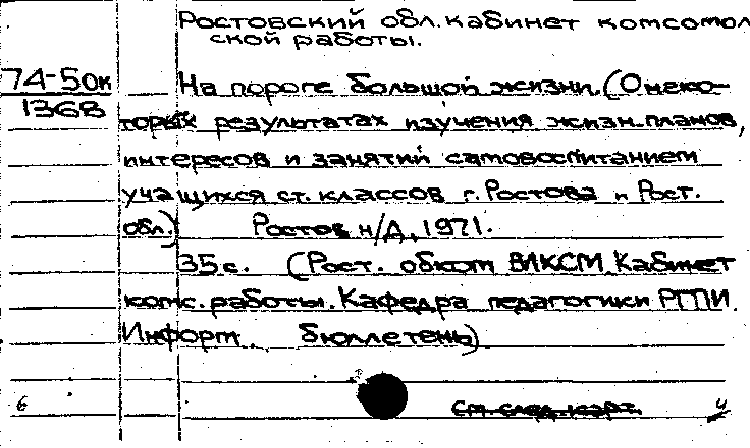 Ростовский обл. кабинет комсомол
ской работы.
74-50к
1368
На пороге большой жизни. (О неко-
торых результатах изучения жизн. планов,
интересов и занятий самовоспитанием
учащихся ст. классов г. Ростова и Рост.
обл.) Ростов н/Д, 1971.
35 с. (Рост. обком ВЛКСМ. Кабинет
комс. работы. Кафедра педагогики РГПИ.
Информ. бюллетень)
6 См. след. карт. 4